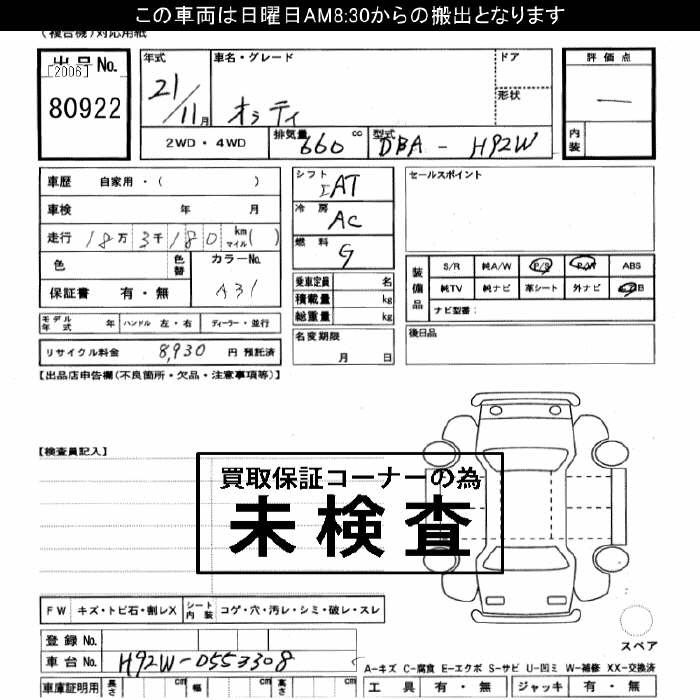 この車両は日曜日AM8:30からの搬出となります
(複合機)対応用紙
出品No.
[2006]
80922
年式
21/11月
車名・グレード
オッティ
ドア
形状
2WD・4WD
排気量 660 cc
型式 DBA-H92W
評価点
—
内装
車歴 自家用・( )
車検 年 月
走行 18万3千180 km マイル( )
色 色替 カラーNo.
保証書 有・無 A31
モデル年式 年 ハンドル 左・右 ディーラー・並行
リサイクル料金 8,930 円 預託済
シフト
IAT
冷房
AC
燃料
G
乗車定員 名
積載量 kg
総重量 kg
名変期限
月 日
セールスポイント
装備品
S/R 純A/W P/S P/W ABS
純TV 純ナビ 革シート 外ナビ B
ナビ型番:
後日品
【出品店申告欄(不良箇所・欠品・注意事項等)】
【検査員記入】
買取保証コーナーの為
未検査
FW キズ・トビ石・割レX シート内装 コゲ・穴・汚レ・シミ・破レ・スレ
登録No.
車台No. H92W-0553308
車庫証明用 長さ cm 幅 cm 高さ cm
スペア
A-キズ C-腐食 E-エクボ S-サビ U-凹ミ W-補修 XX-交換済
工具 有・無 ジャッキ 有・無